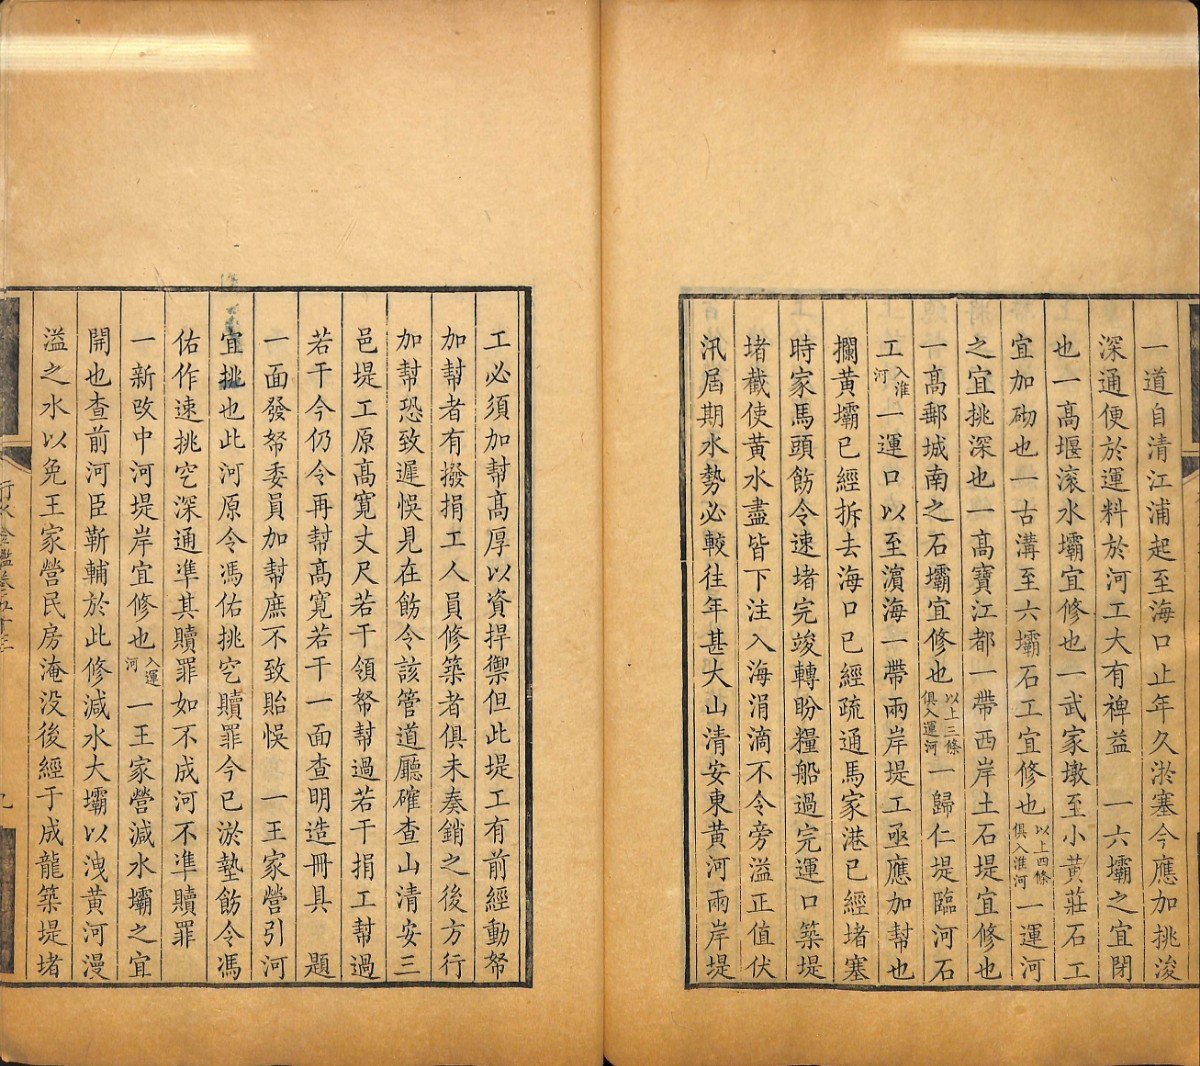 一道自清江浦起至海口止年久淤塞今應加挑浚
深通便於運料於河工大有裨益　一六壩之宜閉
也一高堰滚水壩宜修也一武家墩至小黄莊石工
宜加砌也一古溝至六壩石工宜修也以上四條俱入淮河一運河
之宜挑深也一高寶江都一帶西岸土石堤宜修也
一髙郵城南之石壩宜修也以上三條俱入運河一歸仁堤臨河石
工入淮河一運口以至濵海一帶兩岸堤工亟應加幇也
攔黄壩已經拆去海口已經疏通馬家港已經堵塞
時家馬頭飭令速堵完竣轉盼糧船過完運口築堤
堵截使黄水盡皆下注入海涓滴不令旁溢正值伏
汛屆期水勢必較往年甚大山清安東黄河兩岸堤
工必須加幇髙厚以資捍禦但此堤工有前經動帑
加幇者有撥捐工人員修築者俱未奏銷之後方行
加幇恐致遲悞見在飭令該管道廳確查山清安三
邑堤工原高寛丈尺若干領帑幇過若干捐工幇過
若干今仍令再幇髙寛若干一面查明造冊具　題
一面發帑委員加幇庶不致貽悞　一王家營引河
宜挑也此河原令馮佑挑空贖罪今已淤墊飭令馮
佑作速挑空深通凖其贖罪如不成河不凖贖罪
一新改中河堤岸宜修也入運河一王家營減水壩之宜
開也查前河臣靳輔於此修減水大壩以洩黄河漫
溢之水以免王家營民房淹没後經于成龍築堤堵
行水金鑑卷五十三
九